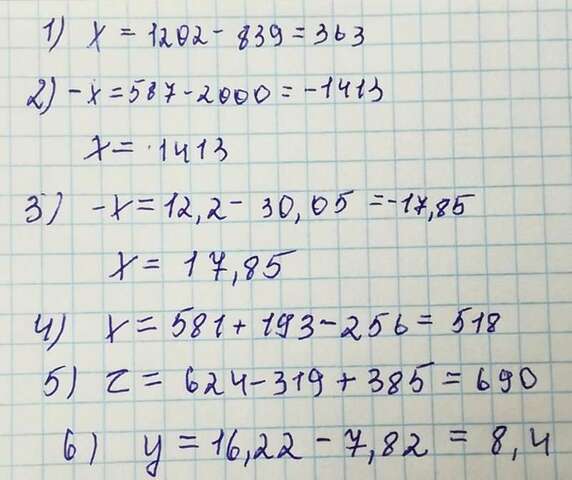 1) x = 1202 - 839 = 363
2) -x = 587 - 2000 = -1413
x = 1413
3) -x = 12,2 - 30,05 = -17,85
x = 17,85
4) x = 581 + 193 - 256 = 518
5) z = 624 - 319 + 385 = 690
6) y = 16,22 - 7,82 = 8,4